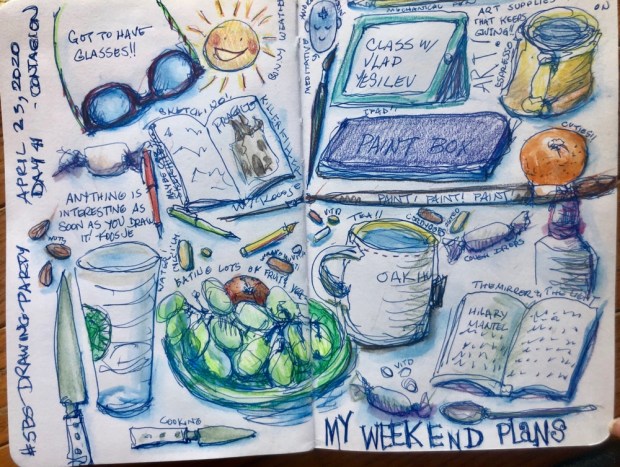 #SBS DRAWING PARTY
APRIL 25, 2020
DAY 41 - CONTAGION
GOT TO HAVE
GLASSES!!
SUNNY WEATHER
MEDITATIVE
CLASS W/
VLAD
YESILEV
IPAD!!
ART!
ESPRESSO
ART SUPPLIES
THAT KEEPS
GIVING!!
PAINT BOX
CUTIES!!
PAINT! PAINT! PAINT!
SKETCH
W/ KOOSJE
ANYTHING IS
INTERESTING AS
SOON AS YOU DRAW
IT KOOSJE
NUTS
WATER
EATING LOTS OF FRUIT
COOKING
TEA!!
VITD
OAKH
COUGH DROPS
VITD
THE MIRROR & THE LIGHT
HILARY
MANTEL
MY WEEKEND PLANS